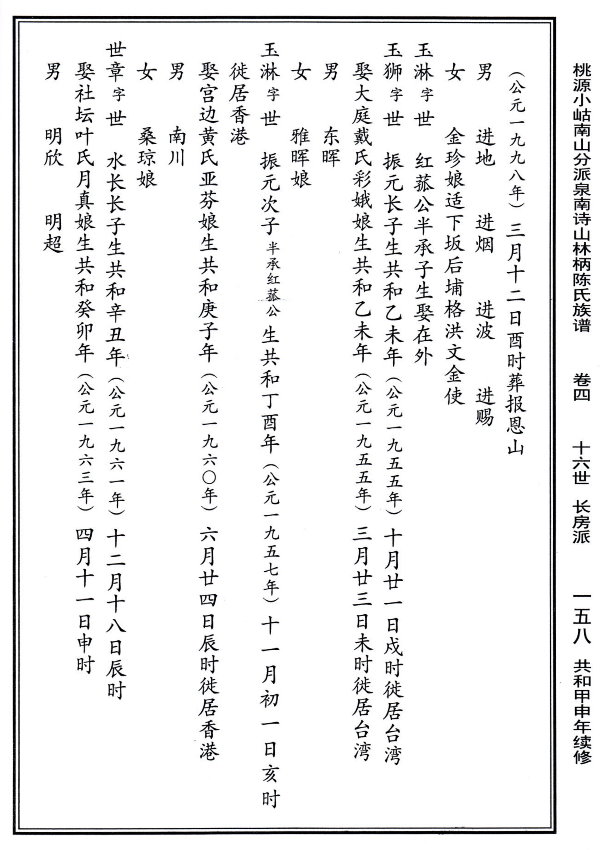 桃源小岵南山分派泉南诗山林柄陈氏族谱　卷四　十六世　长房派　一五八　共和甲申年续修
（公元一九九八年）三月十二日酉时葬报恩山
男　进地　进烟　进波　进赐
女　金珍娘适下坂后埔格洪文金使
玉淋字世　红菰公半承子生娶在外
玉狮字世　振元长子生共和乙未年（公元一九五五年）十月廿一日戍时徙居台湾
娶大庭戴氏彩娥娘生共和乙未年（公元一九五五年）三月廿三日未时徙居台湾
男　东晖
女　雅晖娘
玉淋字世　振元次子半承红菰公生共和丁酉年（公元一九五七年）十一月初一日亥时
徙居香港
娶宫边黄氏亚芬娘生共和庚子年（公元一九六〇年）六月廿四日辰时徙居香港
男　南川
女　桑琼娘
世章字世　水长长子生共和辛丑年（公元一九六一年）十二月十八日辰时
娶社坛叶氏月真娘生共和癸卯年（公元一九六三年）四月十一日申时
男　明欣　明超